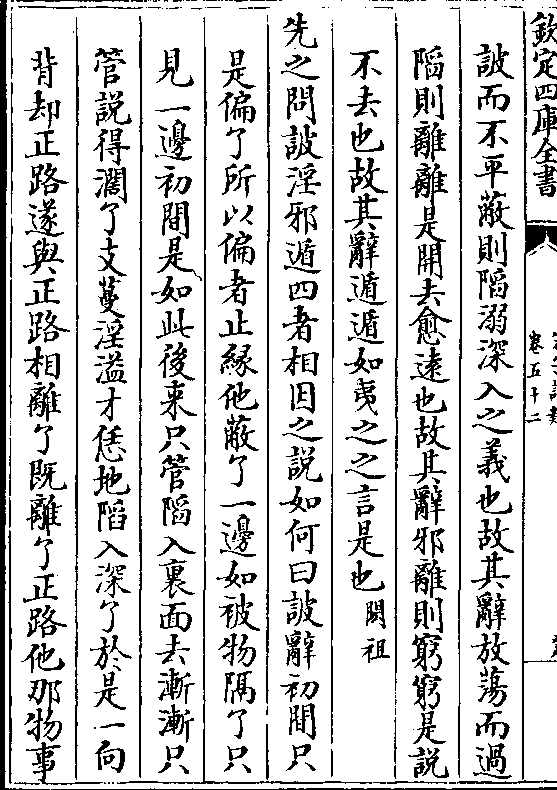 欽定四庫全書
卷五十二
詖而不平蔽則陷溺深入之義也故其辭放蕩而過
陷則離離是開去愈遠也故其辭邪離則窮窮是説
不去也故其辭遁遁如夷之之言是也 閎祖
先之問詖淫邪遁四者相因之説如何曰詖辭初間只
是偏了所以偏者止緣他蔽了一邊如被物隔了只
見一邊初間是如此後来只管陷入裏面去漸漸只
管説得濶了支蔓淫溢才恁地陷入深了於是一向
背却正路遂與正路相離了既離了正路他那物事